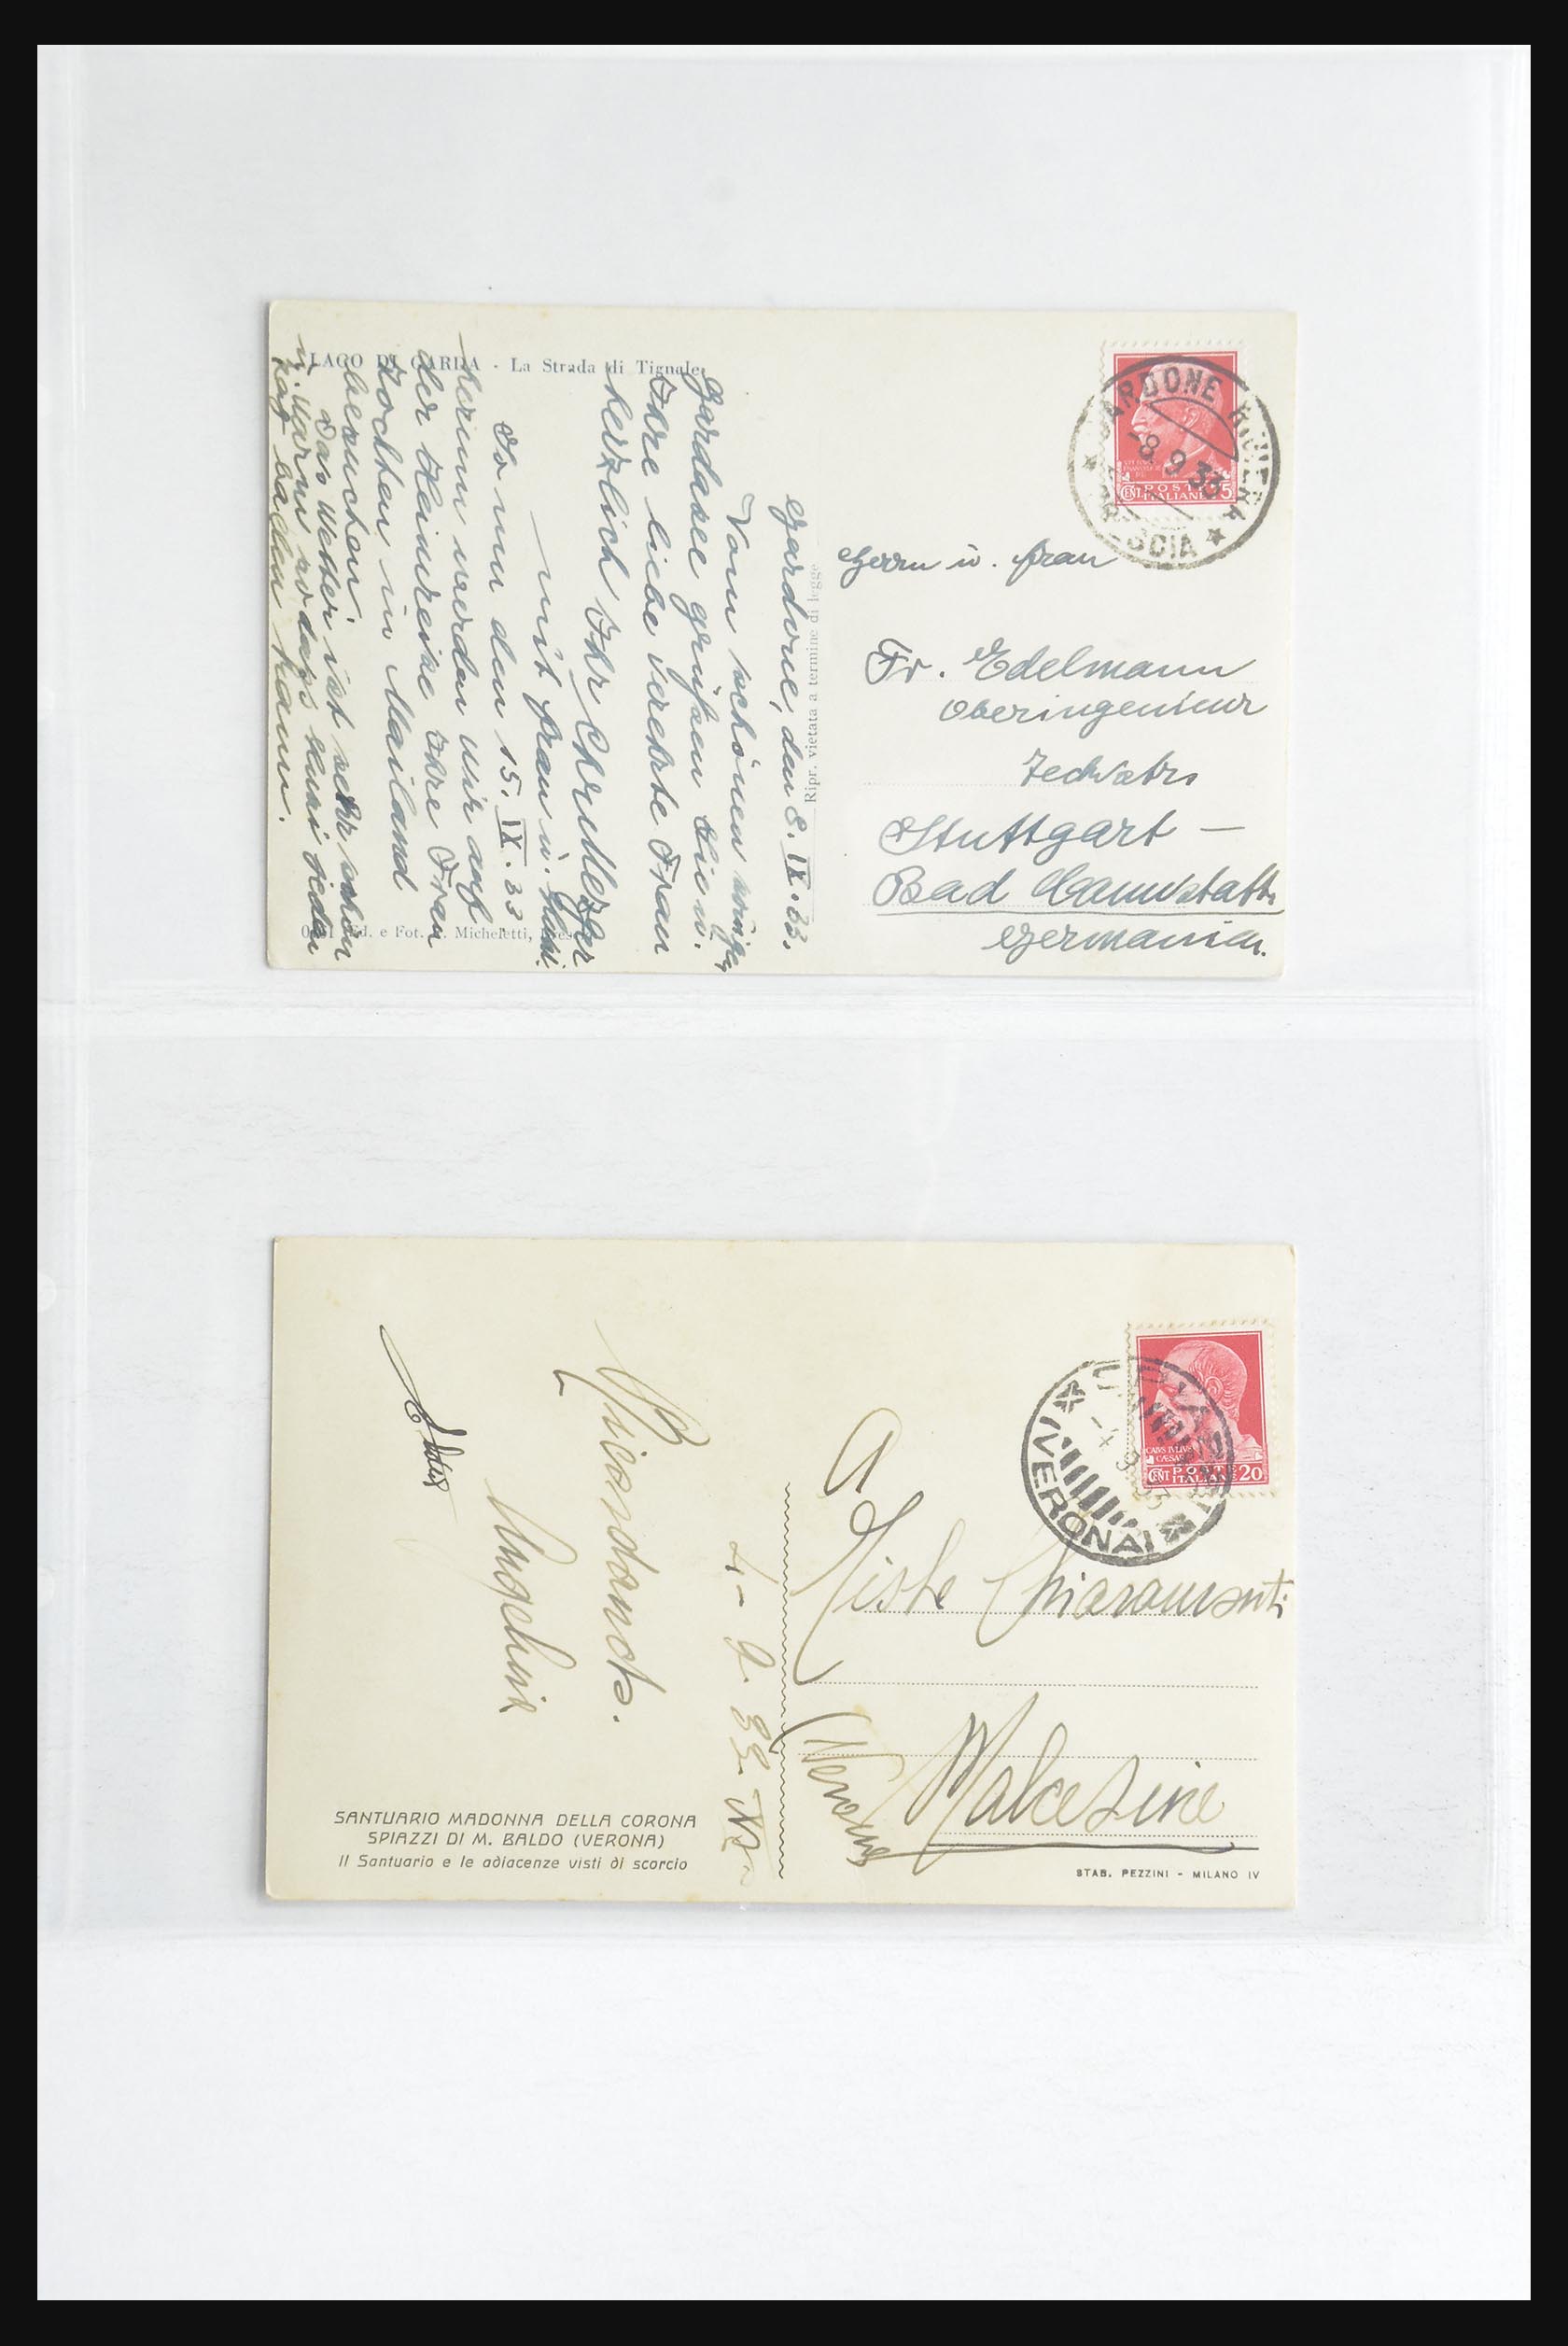 LAGO DI GARDA - La Strada di Tignale
Gardone, den 8. IX. 33.
Vom schönen
Gardasee grüßen Sie u.
Ihre liebe verehrte Frau
herzlich Ihr Chr. Metzger
mit Frau u.
So um den 15. IX. 33
herum werden wir auf
der Heimreise Ihre Frau
Tochter in Mailand
besuchen.
Das Wetter ist sehr schön
u. warm so dass man jeden
Tag baden kann.
Ed. e Fot. Micheletti,
Ripr. vietata a termine di legge
GARDONE RIVIERA
-8.9.33
BRESCIA
POSTE
ITALIANE
CENT
Herrn u. Frau
Fr. Edelmann
Oberingenieur
Stuttgart -
Bad Cannstatt
Germania.
4-9-33
Ricordando.
Angelina
A
Chiaramonti
Malcesine
(Verona)
CAIVS IVLIVS
CAESAR
CENT POSTE
ITALIANE 20
(VERONA)
SANTUARIO MADONNA DELLA CORONA
SPIAZZI DI M. BALDO (VERONA)
Il Santuario e le adiacenze visti di scorcio
STAB. PEZZINI - MILANO IV